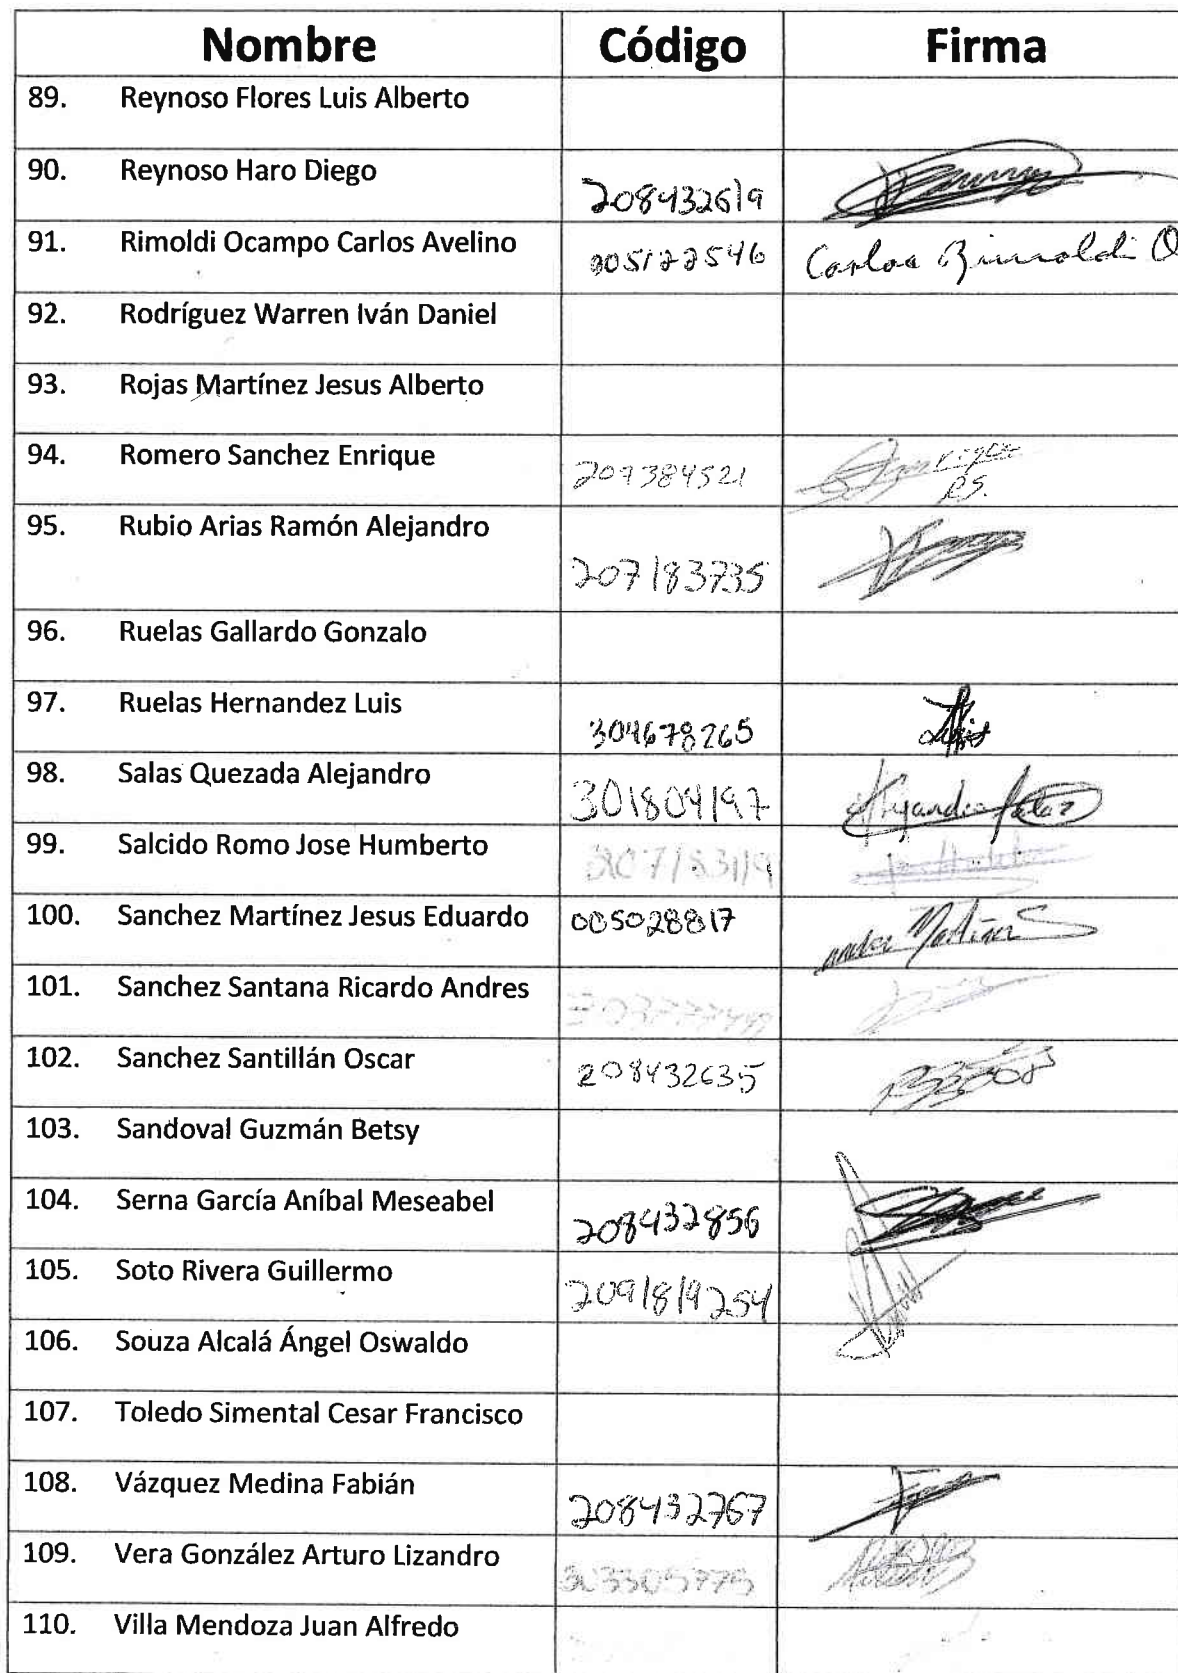 Nombre Código Firma
89. Reynoso Flores Luis Alberto
90. Reynoso Haro Diego 208432619
91. Rimoldi Ocampo Carlos Avelino 005122546 Carlos Rimoldi O
92. Rodríguez Warren Iván Daniel
93. Rojas Martínez Jesus Alberto
94. Romero Sanchez Enrique 207384521 Enrique
RS.
95. Rubio Arias Ramón Alejandro 207183735
96. Ruelas Gallardo Gonzalo
97. Ruelas Hernandez Luis 304678265 Luis
98. Salas Quezada Alejandro 301804197 Alejandro Salas
99. Salcido Romo Jose Humberto
100. Sanchez Martínez Jesus Eduardo 005028817 Martínez S
101. Sanchez Santana Ricardo Andres
102. Sanchez Santillán Oscar 208432635
103. Sandoval Guzmán Betsy
104. Serna García Aníbal Meseabel 208432856
105. Soto Rivera Guillermo
106. Souza Alcalá Ángel Oswaldo
107. Toledo Simental Cesar Francisco
108. Vázquez Medina Fabián 208432767
109. Vera González Arturo Lizandro
110. Villa Mendoza Juan Alfredo